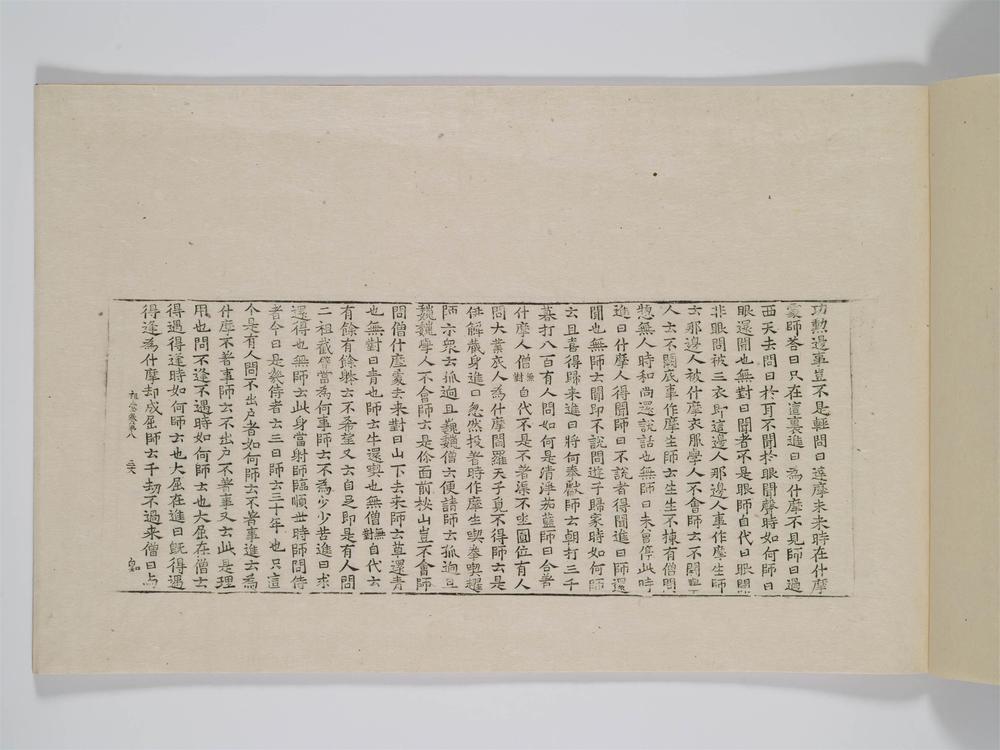 功勳邊事豈不是輕問曰達摩未來時在什摩
處師答曰只在這裏進曰為什摩不見師曰過
西天去問曰於耳不聞於眼聞聲時如何師曰
眼還開也無對曰聞者不是眼師自代曰眼開
非眼問被三衣即這邊人那邊人事作摩生師
云那邊人被什摩衣服學人不會師云不開
人云不開底事作摩生師云生生不揀有僧問
惣無人時和尚還說話也無師曰未曾停此時
進曰什摩人得聞師曰不說者得聞進曰師還
聞也無師云聞即不說問遊子歸家時如何師
云且喜得歸來進曰將何奉獻師云朝打三千
暮打八百有人問如何是清淨茄藍師曰合著
什摩人僧無對自代不是不著渠不坐圓位有人
問大業底人為什摩閻羅天子覓不得師云是
伊解藏身進曰忽然投著時作摩生喫拳喫趯
師示眾云孤迥且巍巍僧云便請師云孤迥且
巍巍學人不會師云是你面前桉山豈不會師
問僧什摩處去來對曰山下去來師云草還青
也無對曰青也師云牛還喫也無僧無對自代云
有餘有餘師云不希望又云自足即是有人問
二祖截臂當為何事師云不為少少苦進曰求
還得也無師云此身當射師臨順世時師問侍
者今日是幾侍者云三日師云三十年也只這
个是有人問不出戶者如何師云不著事進云為
什摩不著事師云不出戶不著事又云此是理
用也問不逢不遇時如何師云也大屈在僧云
得遇得逢時如何師云也大屈在進曰旣得遇
得逢為什摩却成屈師云千劫不過來僧曰与
祖堂集卷八